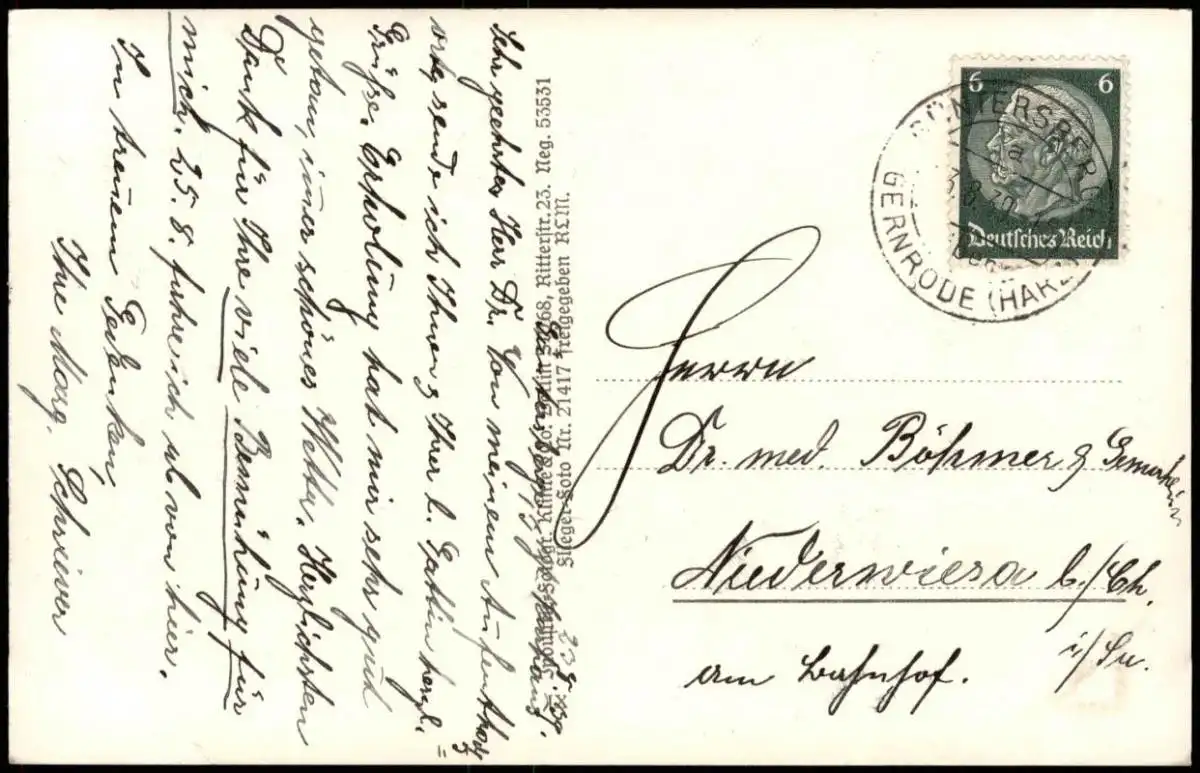 Sehr geehrter Herr Dr. Von meinem Aufenthalts-
orte, sende ich Ihnen & Ihrer l. Gattin herzl.
Grüße. Erholung hat mir sehr gut
getan, immer schönes Wetter. Herzlichsten
Dank für Ihre viele Bemühung für
mich. 25.8. fahre ich ab von hier.
In treuem Gedenken,
Ihre Marg. Schreiver
Güntersberge, 23.8.39.
Ritterstr. 23. Neg. 53531
Flieger-Foto Nr. 21417 freigegeben RLM.
6 6
Deutsches Reich
GÜNTERSBERGE
a
GERNRODE (HARZ)
Herrn
Dr. med. Böhmer &
Niederwiesa b./Ch.
i/Sa.
am Bahnhof.